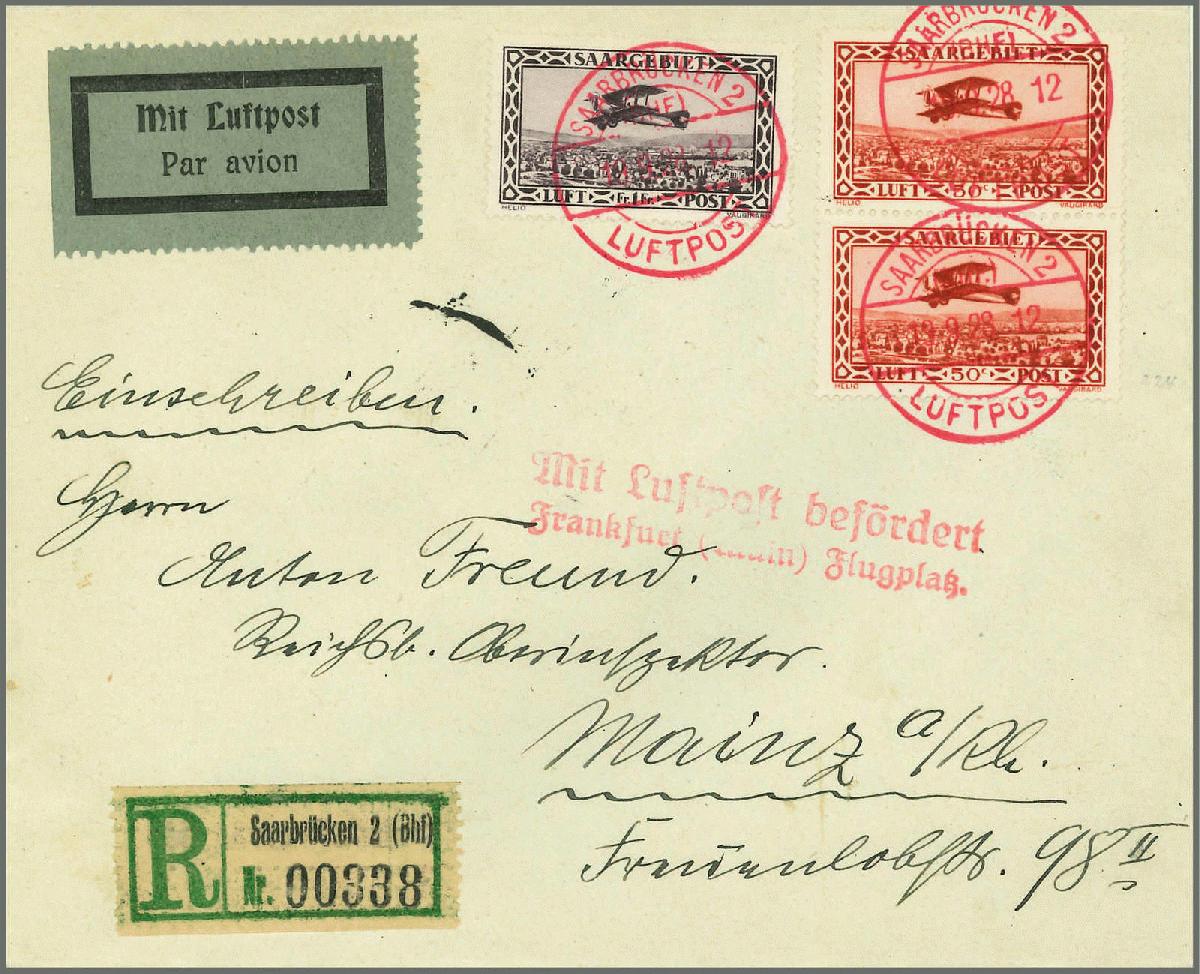 Mit Luftpost
Par avion
SAARGEBIET
LUFT Fr. 1 Fr. POST
HELIO VAUGIRARD
SAARBRÜCKEN 2
12
LUFTPOST
SAARGEBIET
LUFT 50c. POST
HELIO VAUGIRARD
SAARBRÜCKEN 2
28 12
SAARGEBIET
LUFT 50c. POST
HELIO VAUGIRARD
SAARBRÜCKEN 2
9.28 12
LUFTPOST
Einschreiben.
Herrn
Anton Freund.
Reichsb. Oberinspektor.
Mainz a/Rh.
Frauenlobstr. 98 II
Mit Luftpost befördert
Frankfurt (Main) Flugplatz.
R
Saarbrücken 2 (Bhf)
Nr. 00338